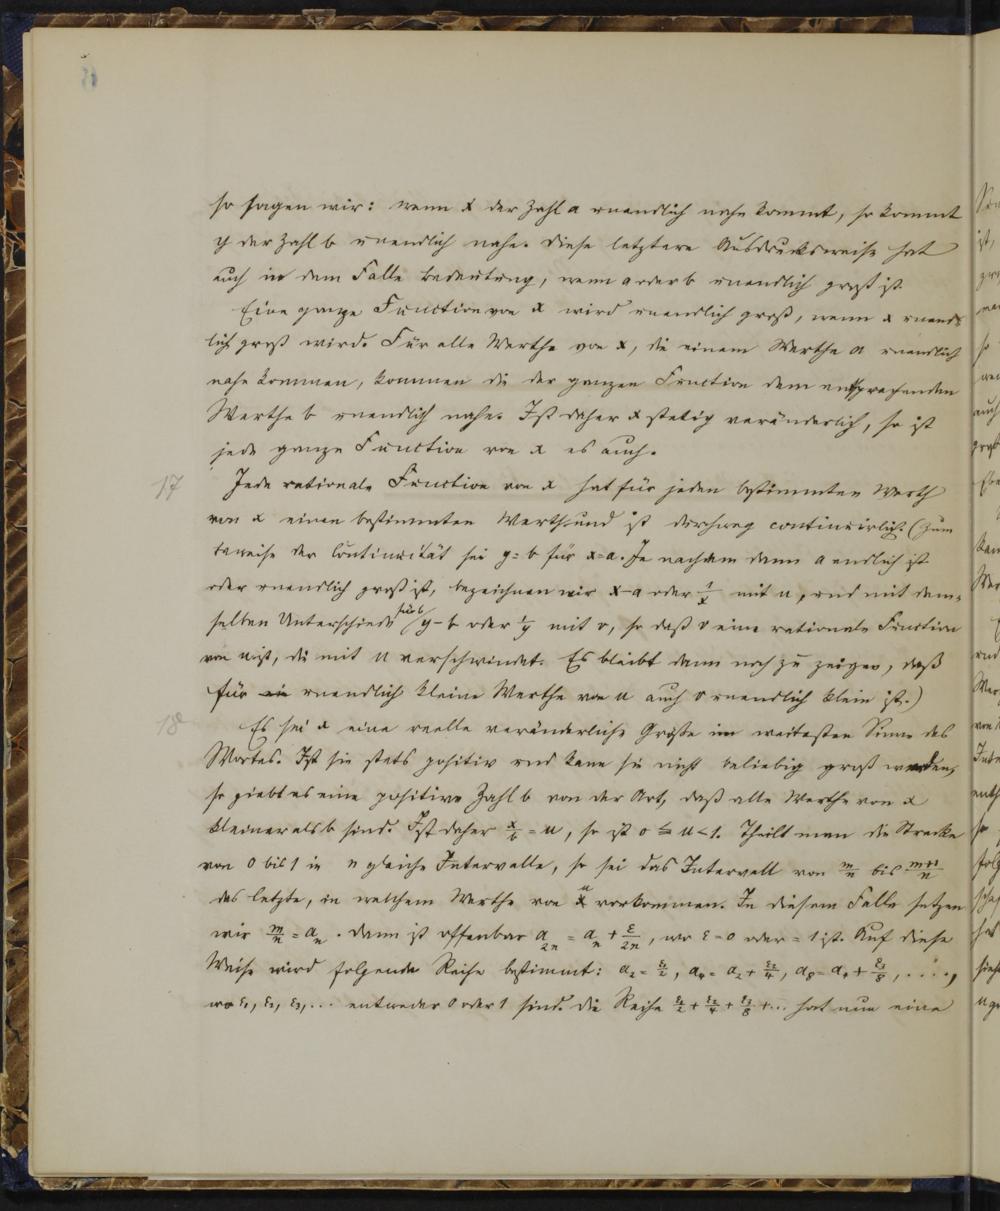 so sagen wir: wenn x der Zahl a unendlich nahe kommt, so kommt
y der Zahl b unendlich nahe. Diese letztere Ausdrucksweise hat
auch in dem Falle Bedeutung, wenn a oder b unendlich groß ist.
Eine ganze Function von x wird unendlich groß, wenn x unend-
lich groß wird. Für alle Werthe von x, die einem Werthe a unendlich
nahe kommen, kommen die der ganzen Function dem entsprechenden
Werthe b unendlich nahe. Ist daher x stetig veränderlich, so ist
jede ganze Function von x es auch.
17 Jede rationale Function von x hat für jeden bestimmten Werth
von x einen bestimmten Werth und ist durchweg continuirlich. (Zum
Beweise der Continuität sei y = b für x = a. Je nachdem dann a endlich ist
oder unendlich groß ist, bezeichnen wir x-a oder 1/x mit u, und mit dem-
selben Unterschiede für b y-b oder 1/y mit v, so daß v eine rationale Function
von u ist, die mit u verschwindet. Es bleibt dann noch zu zeigen, daß
für unendlich kleine Werthe von u auch v unendlich klein ist.)
18 Es sei x eine reelle veränderliche Größe im weitesten Sinne des
Wortes. Ist sie stets positiv und kann sie nicht beliebig groß werden,
so giebt es eine positive Zahl b von der Art, daß alle Werthe von x
kleiner als b sind. Ist daher x/b = u, so ist 0 ≦ u < 1. Theilt man die Strecke
von 0 bis 1 in n gleiche Intervalle, so sei das Intervall von m/n bis m+1/n
das letzte, in welchem Werthe von u vorkommen. In diesem Falle setzen
wir m/n = a_n. Dann ist offenbar a_2n = a_n + ε/2n, wo ε = 0 oder = 1 ist. Auf diese
Weise wird folgende Reihe bestimmt: a₂ = ε₁/2, a₄ = a₂ + ε₂/4, a₈ = a₄ + ε₃/8, . . . . ,
wo ε₁, ε₂, ε₃, ... entweder 0 oder 1 sind. Die Reihe ε₁/2 + ε₂/4 + ε₃/8 + ... hat nun eine